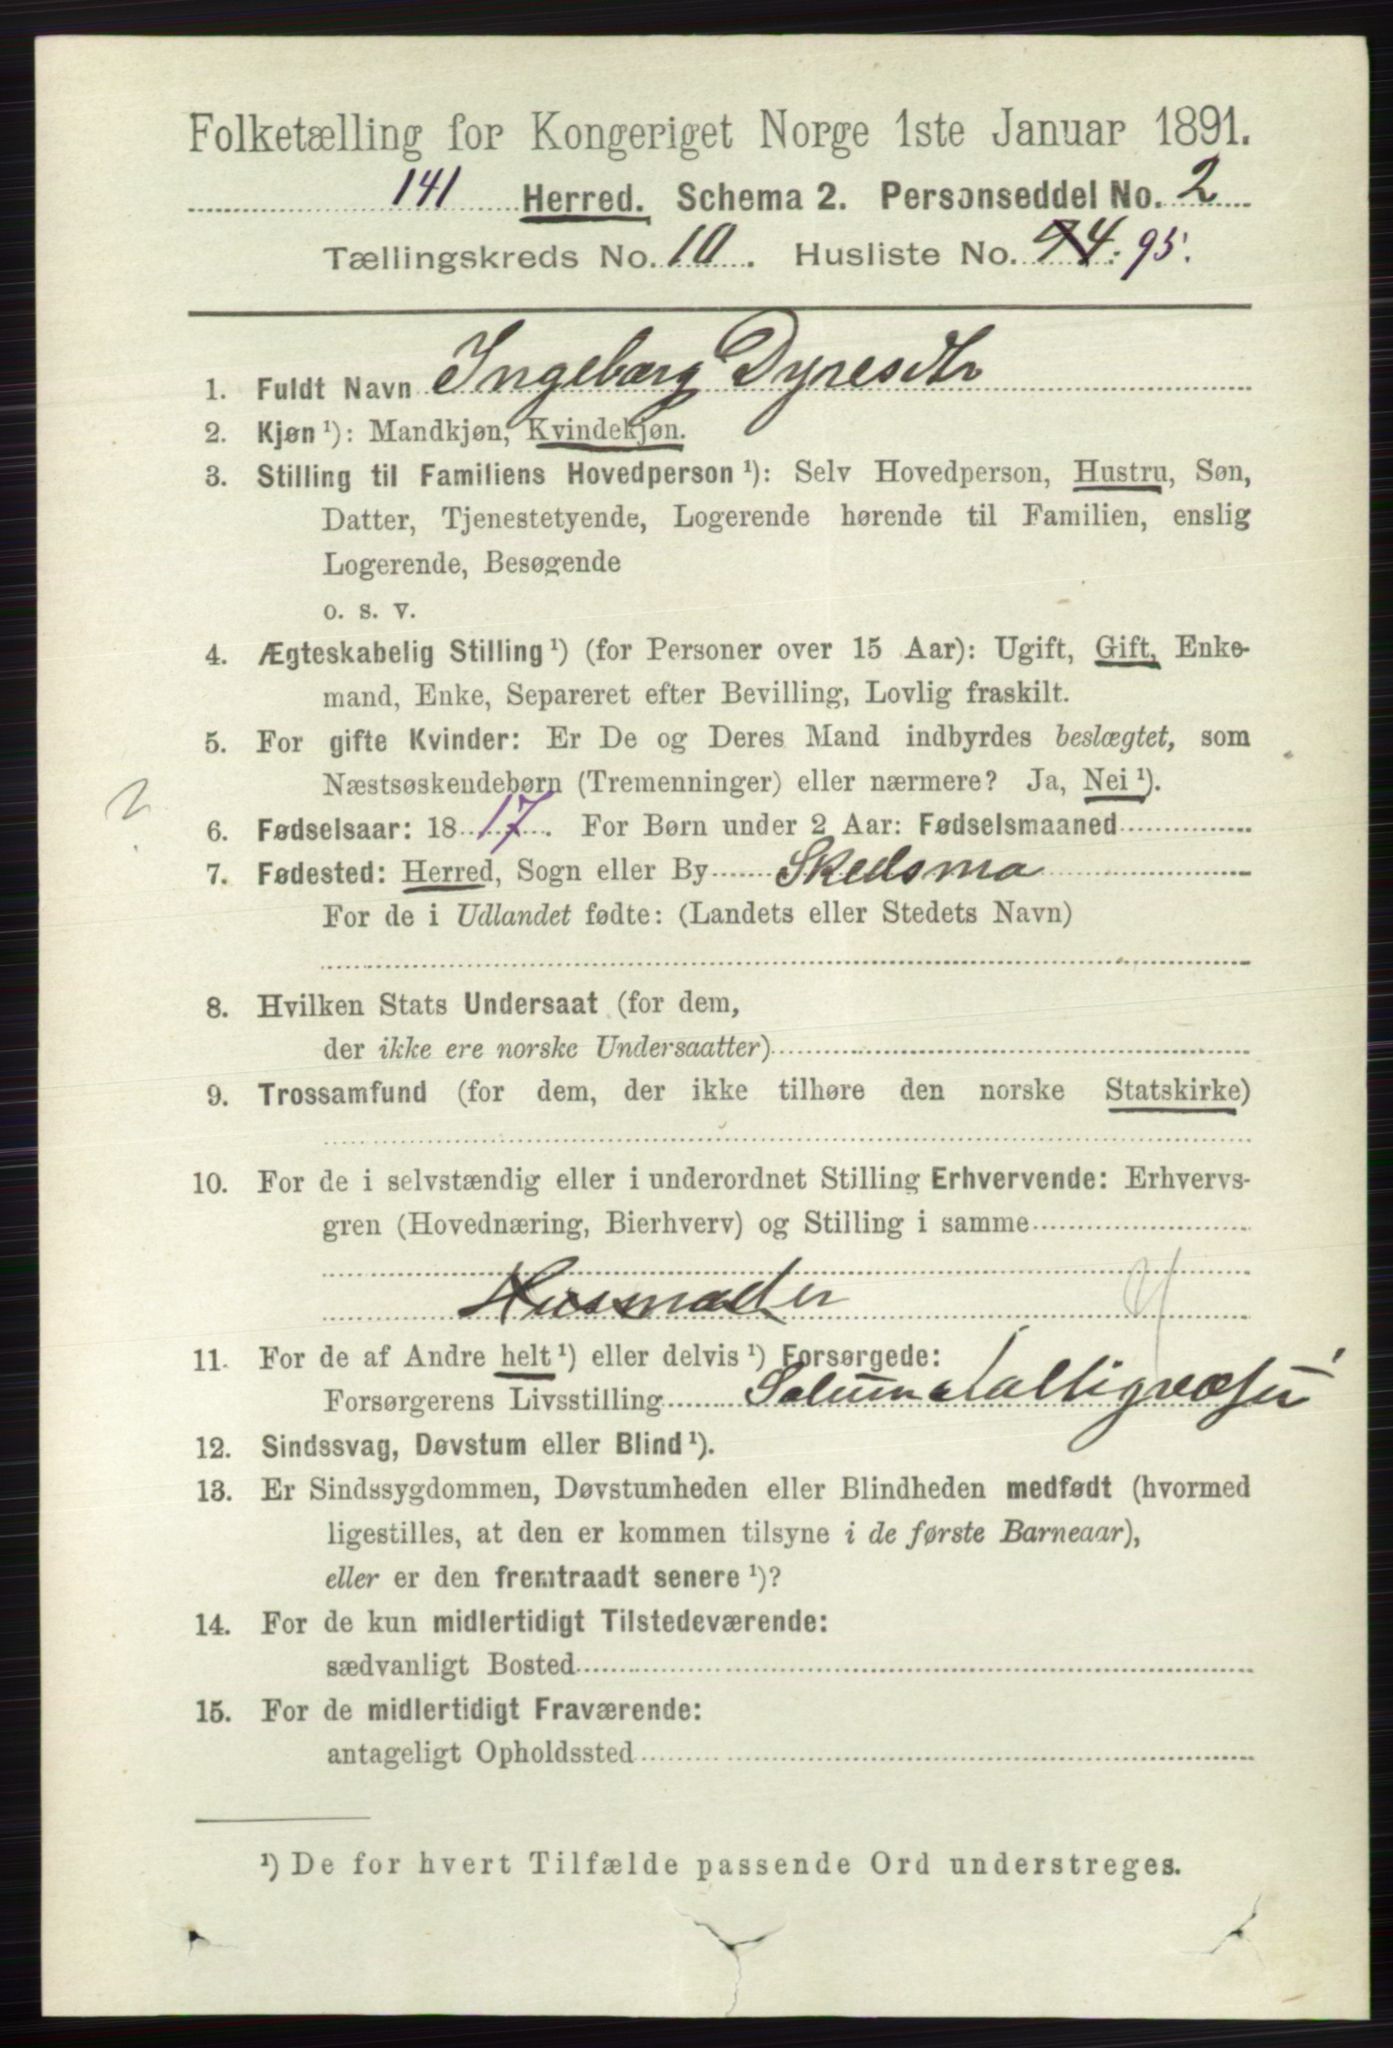 Folketælling for Kongeriget Norge 1ste Januar 1891.
141 Herred. Schema 2. Personseddel No. 2
Tællingskreds No. 10. Husliste No. 94. 95.
1. Fuldt Navn Ingebørg Dyresdtr
2. Kjøn ¹): Mandkjøn, Kvindekjøn.
3. Stilling til Familiens Hovedperson ¹): Selv Hovedperson, Hustru, Søn,
Datter, Tjenestetyende, Logerende hørende til Familien, enslig
Logerende, Besøgende
o. s. v.
4. Ægteskabelig Stilling ¹) (for Personer over 15 Aar): Ugift, Gift, Enke-
mand, Enke, Separeret efter Bevilling, Lovlig fraskilt.
5. For gifte Kvinder: Er De og Deres Mand indbyrdes beslægtet, som
Næstsøskendebørn (Tremenninger) eller nærmere? Ja, Nei ¹).
2
6. Fødselsaar: 18 17. For Børn under 2 Aar: Fødselsmaaned
7. Fødested: Herred, Sogn eller By Skedsmo
For de i Udlandet fødte: (Landets eller Stedets Navn)
8. Hvilken Stats Undersaat (for dem,
der ikke ere norske Undersaatter)
9. Trossamfund (for dem, der ikke tilhøre den norske Statskirke)
10. For de i selvstændig eller i underordnet Stilling Erhvervende: Erhvervs-
gren (Hovednæring, Bierhverv) og Stilling i samme
Husmoder
11. For de af Andre helt ¹) eller delvis ¹) Forsørgede:
Forsørgerens Livsstilling
12. Sindssvag, Døvstum eller Blind ¹).
13. Er Sindssygdommen, Døvstumheden eller Blindheden medfødt (hvormed
ligestilles, at den er kommen tilsyne i de første Barneaar),
eller er den fremtraadt senere ¹)?
14. For de kun midlertidigt Tilstedeværende:
sædvanligt Bosted
15. For de midlertidigt Fraværende:
antageligt Opholdssted
¹) De for hvert Tilfælde passende Ord understreges.